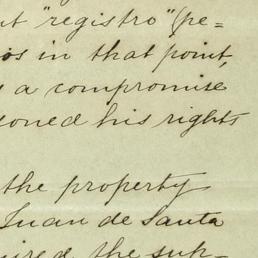 nt "registro" (pe=
os in that point,
s a compromise
oned his rights
the property
Juan de Santa
ired the sub-